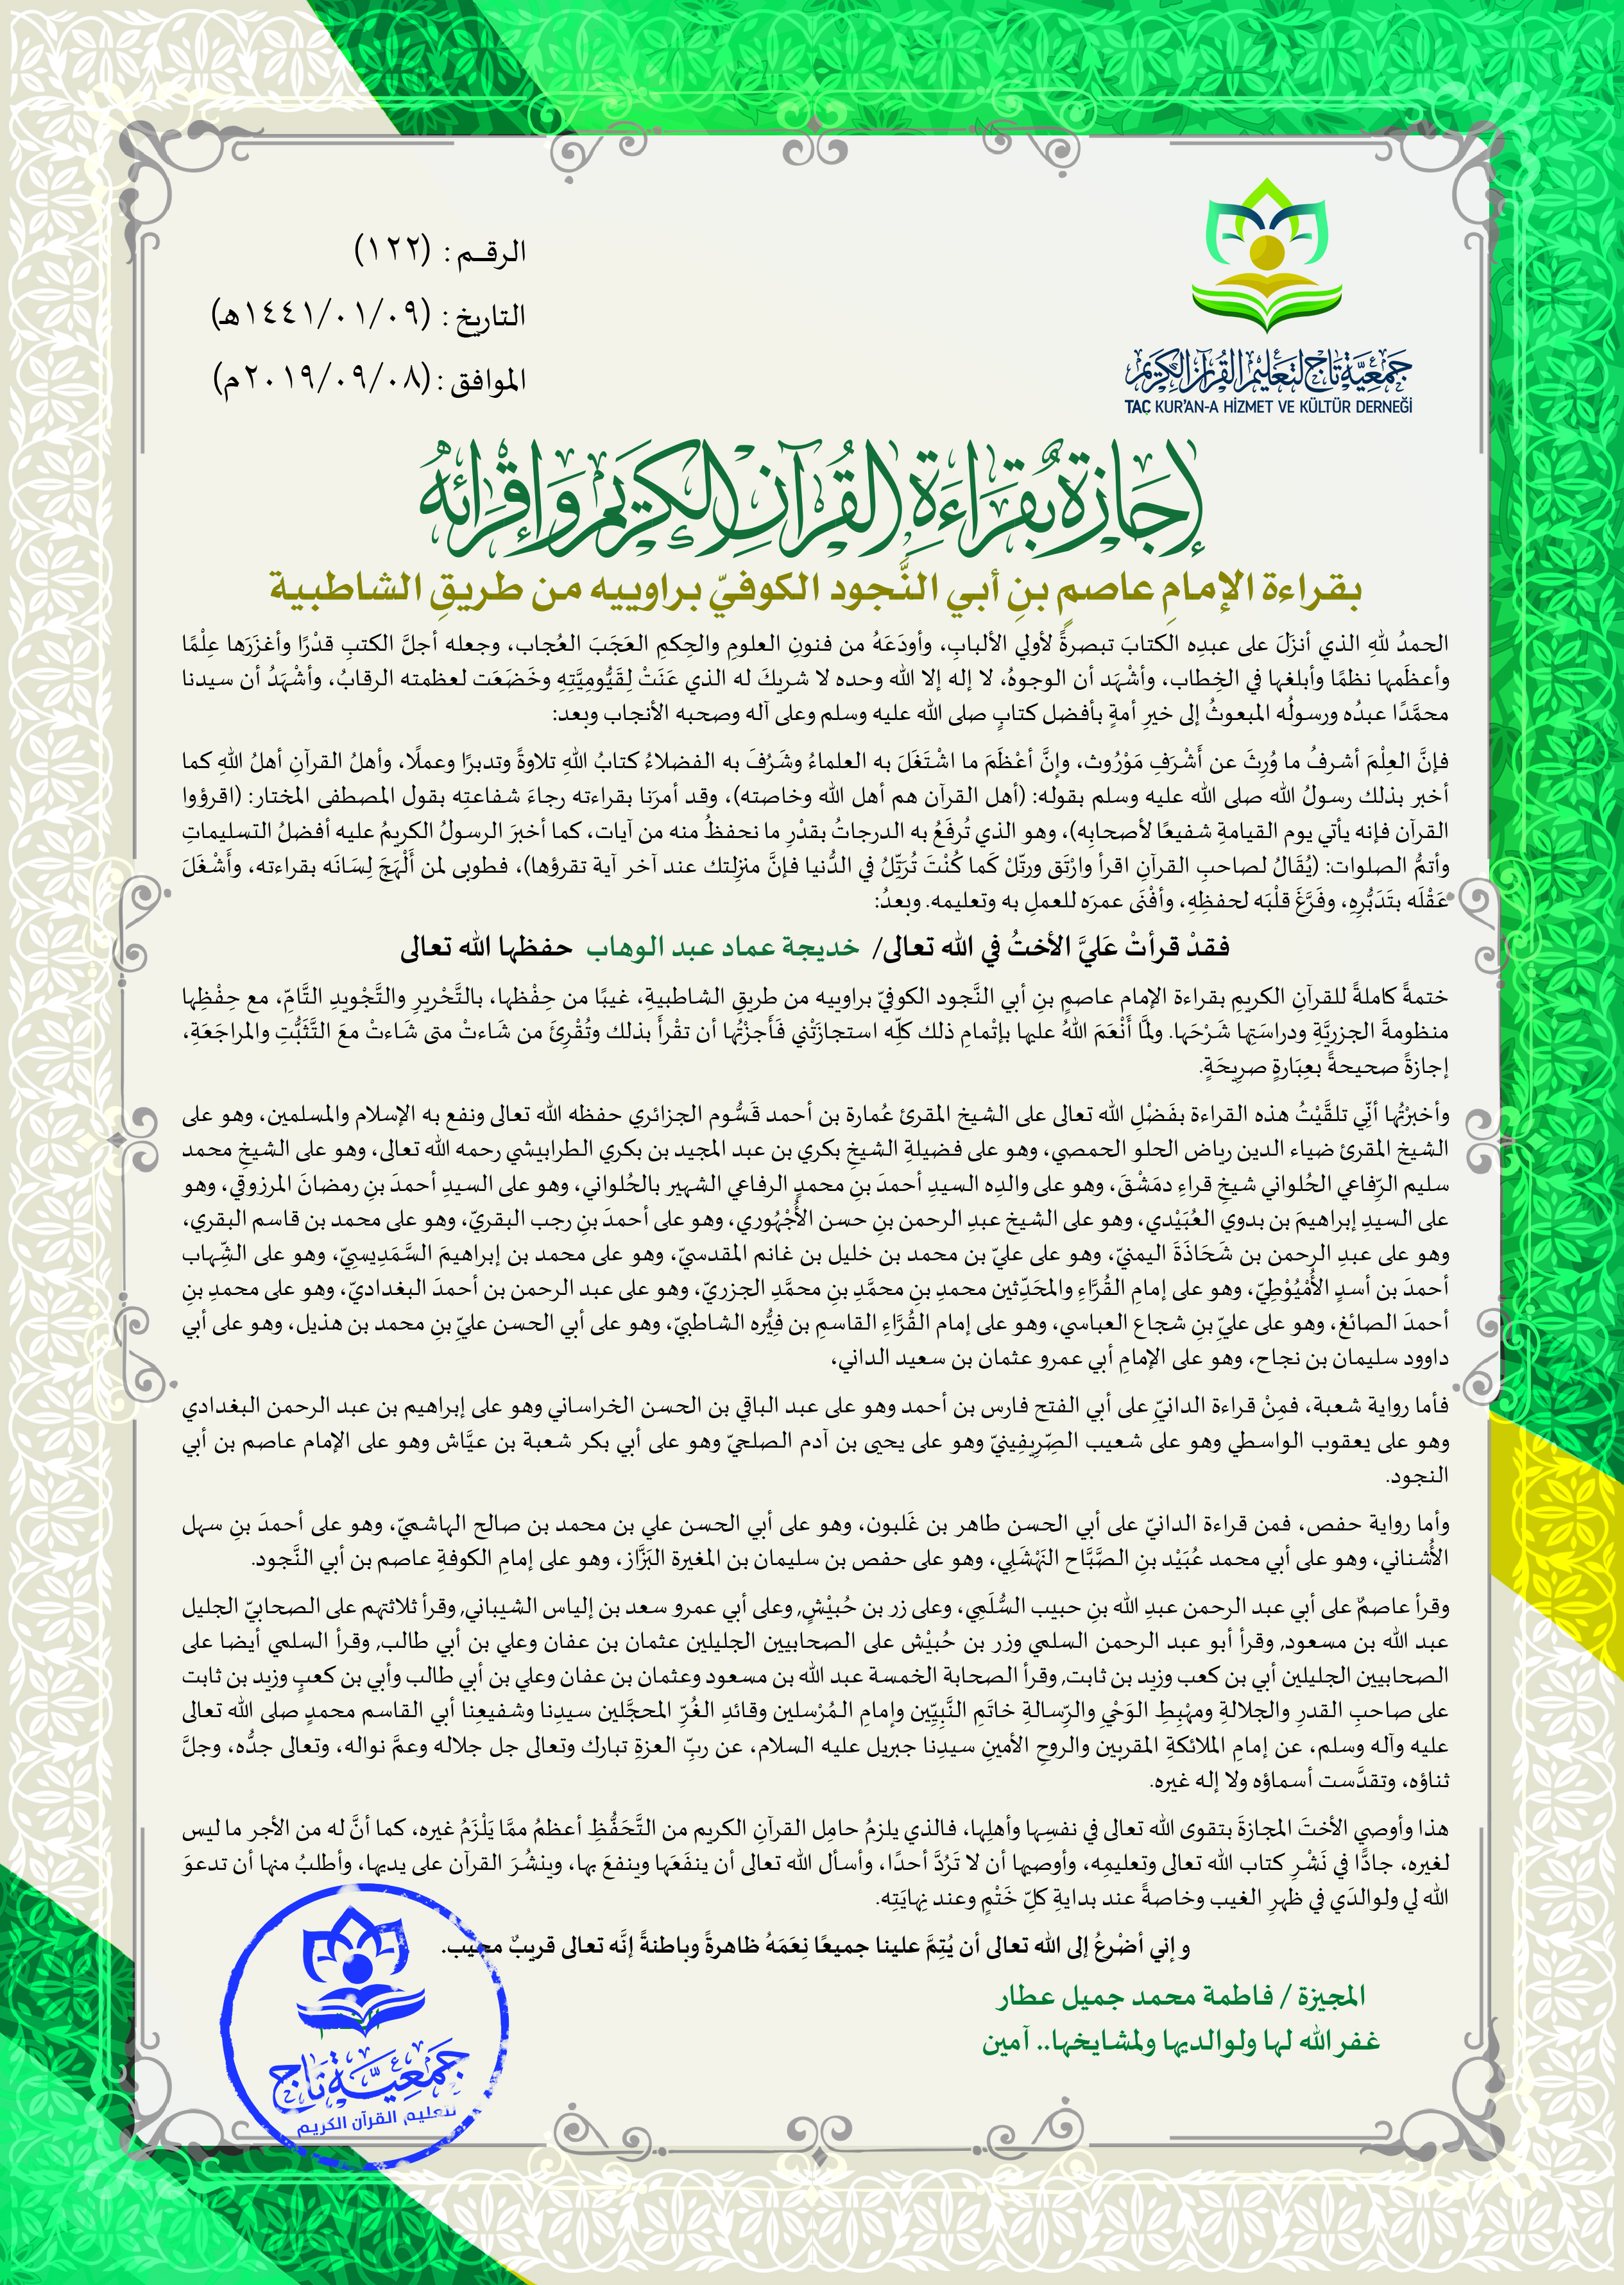 الرقـم : (١٢٢)
التاريخ : (١٤٤١/٠١/٠٩هـ)
الموافق : (٢٠١٩/٠٩/٠٨م)
جمعية تاج لتعليم القرآن الكريم
TAÇ KUR'AN-A HİZMET VE KÜLTÜR DERNEĞİ
إجازة بقراءة القرآن الكريم وإقرائه
بقراءة الإمامِ عاصمٍ بنِ أبي النَّجود الكوفيّ براوييه من طريقِ الشاطبية
الحمدُ للهِ الذي أنزَلَ على عبدِه الكتابَ تبصرةً لأولي الألبابِ، وأودَعَهُ من فنونِ العلومِ والحِكمِ العَجَبَ العُجاب، وجعله أجلَّ الكتبِ قدْرًا وأغزَرَها عِلْمًا
وأعظَمِها نظمًا وأبلغها في الخِطاب، وأشْهَد أن الوجوهُ، لا إله إلا الله وحده لا شريكَ له الذي عَنَتْ لِقَيُّومِيَّتِهِ وخَضَعَت لعظمته الرقابُ، وأشْهَدُ أن سيدنا
محمَّدًا عبدُه ورسولُه المبعوثُ إلى خيرِ أمةٍ بأفضل كتابٍ صلى الله عليه وسلم وعلى آله وصحبه الأنجاب وبعد:
فإنَّ العِلْمَ أشرفُ ما وُرِثَ عن أَشْرَفِ مَوْرُوث، وإنَّ أعْظَمَ ما اشْتَغَلَ به العلماءُ وشَرُفَ به الفضلاءُ كتابُ اللهِ تلاوةً وتدبرًا وعملًا، وأهلُ القرآنِ أهلُ اللهِ كما
أخبر بذلك رسولُ الله صلى الله عليه وسلم بقوله: (أهل القرآن هم أهل الله وخاصته)، وقد أمرَنا بقراءته رجاءَ شفاعتِه بقول المصطفى المختار: (اقرؤوا
القرآن فإنه يأتي يوم القيامةِ شفيعًا لأصحابِه)، وهو الذي تُرفَعُ به الدرجاتُ بقدْرِ ما نحفظُ منه من آيات، كما أخبرَ الرسولُ الكريمُ عليه أفضلُ التسليماتِ
وأتمُّ الصلوات: (يُقَالُ لصاحبِ القرآنِ اقرأ وارْتَقِ ورتّلْ كَما كُنْتَ تُرَتِّلُ في الدُّنيا فإنَّ منْزِلتك عند آخر آية تقرؤها)، فطوبى لمن أَلْهَجَ لِسَانَه بقراءته، وأَشْغَلَ
عَقْلَه بتَدَبُّرِهِ، وفَرَّغَ قلْبَه لحفظِهِ، وأفْنَى عمرَه للعملِ به وتعليمه. وبعدُ:
فقدْ قرأتْ عَليَّ الأختُ في الله تعالى/ خديجة عماد عبد الوهاب حفظها الله تعالى
ختمةً كاملةً للقرآنِ الكريمِ بقراءة الإمام عاصمٍ بنِ أبي النَّجود الكوفيّ براوييه من طريقِ الشاطبيةِ، غيبًا من حِفْظها، بالتَّحْريرِ والتَّجْويدِ التَّامّ، مع حِفْظِها
منظومةَ الجزريَّةِ ودراسَتِها شَرْحَها. ولمَّا أَنْعَمَ اللهُ عليها بإتْمامِ ذلك كلِّه استجازَتْني فَأَجزْتُها أن تقْرأَ بذلك وتُقْرِئَ من شَاءتْ متى شَاءتْ معَ التَّثَبُّتِ والمراجَعَةِ،
إجازةً صحيحةً بعِبَارةٍ صرِيحَةٍ.
وأخبرْتُها أنّي تلقَّيْتُ هذه القراءة بفَضْلِ الله تعالى على الشيخ المقرئ عُمارة بن أحمد قَسُّوم الجزائري حفظه الله تعالى ونفع به الإسلام والمسلمين، وهو على
الشيخ المقرئ ضياء الدين رياض الحلو الحمصي، وهو على فضيلةِ الشيخِ بكري بن عبد المجيد بن بكري الطرابيشي رحمه الله تعالى، وهو على الشيخِ محمد
سليم الرّفاعي الحُلواني شيخِ قراءِ دمَشْقَ، وهو على والدِه السيدِ أحمدَ بنِ محمدٍ الرفاعي الشهير بالحُلواني، وهو على السيدِ أحمدَ بنِ رمضانَ المرزوقي، وهو
على السيدِ إبراهيمَ بن بدوي العُبَيْدي، وهو على الشيخ عبدِ الرحمن بنِ حسن الأُجْهُوري، وهو على أحمدَ بنِ رجب البقريّ، وهو على محمد بن قاسم البقري،
وهو على عبدِ الرحمن بن شَحَاذَةَ اليمنيّ، وهو على عليّ بن محمد بن خليل بن غانم المقدسيّ، وهو على محمد بن إبراهيمَ السَّمَدِيسِيّ، وهو على الشِّهاب
أحمدَ بن أسدٍ الأُمْيُوْطِيّ، وهو على إمامِ القُرَّاءِ والمحَدِّثين محمدِ بنِ محمَّدِ بنِ محمَّدِ الجزريّ، وهو على عبد الرحمن بن أحمدَ البغداديّ، وهو على محمدِ بنِ
أحمدَ الصائغ، وهو على عليِّ بنِ شجاع العباسي، وهو على إمام القُرَّاءِ القاسمِ بن فِيُّرُه الشاطبيّ، وهو على أبي الحسن عليِّ بنِ محمد بن هذيل، وهو على أبي
داوود سليمان بن نجاح، وهو على الإمامِ أبي عمرو عثمان بن سعيد الداني،
فأما رواية شعبة، فمِنْ قراءة الدانيّ على أبي الفتح فارس بن أحمد وهو على عبد الباقي بن الحسن الخراساني وهو على إبراهيم بن عبد الرحمن البغدادي
وهو على يعقوب الواسطي وهو على شعيب الصِّرِيفِينيّ وهو على يحيى بن آدم الصلحيّ وهو على أبي بكر شعبة بن عيَّاش وهو على الإمام عاصم بن أبي
النجود.
وأما رواية حفص، فمن قراءة الدانيّ على أبي الحسن طاهر بن غَلبون، وهو على أبي الحسن علي بن محمد بن صالح الهاشميّ، وهو على أحمدَ بنِ سهل
الأُشناني، وهو على أبي محمد عُبَيْد بنِ الصَّبَّاح النَهْشَلِي، وهو على حفص بن سليمان بن المغيرة البَزَّاز، وهو على إمامِ الكوفةِ عاصم بن أبي النَّجود.
وقرأ عاصمٌ على أبي عبد الرحمن عبدِ الله بنِ حبيب السُّلَمِي، وعلى زر بن حُبيْشٍ, وعلى أبي عمرو سعد بن إلياس الشيباني, وقرأ ثلاثتهم على الصحابيّ الجليل
عبد الله بن مسعود, وقرأ أبو عبد الرحمن السلمي وزر بن حُبيْش على الصحابيين الجليلين عثمان بن عفان وعلي بن أبي طالب, وقرأ السلمي أيضا على
الصحابيين الجليلين أبي بن كعب وزيد بن ثابت, وقرأ الصحابة الخمسة عبد الله بن مسعود وعثمان بن عفان وعلي بن أبي طالب وأبي بن كعبٍ وزيد بن ثابت
على صاحبِ القدرِ والجلالةِ ومهْبِطِ الوَحْيِ والرِّسالةِ خاتَمِ النَّبِيِّين وإمامِ المُرْسلين وقائدِ الغُرّ المحجَّلين سيدِنا وشفيعِنا أبي القاسم محمدٍ صلى الله تعالى
عليه وآله وسلم، عن إمامِ الملائكةِ المقربين والروحِ الأمينِ سيدِنا جبريل عليه السلام، عن ربِّ العزةِ تبارك وتعالى جل جلاله وعمَّ نواله، وتعالى جدُّه، وجلَّ
ثناؤه، وتقدَّست أسماؤه ولا إله غيره.
هذا وأوصي الأختَ المجازةَ بتقوى الله تعالى في نفسِها وأهلِها، فالذي يلزمُ حامِل القرآنِ الكريم من التَّحَفُّظِ أعظمُ ممَّا يَلْزَمُ غيره، كما أنَّ له من الأجر ما ليس
لغيره، جادًّا في نَشْرِ كتاب الله تعالى وتعليمِه، وأوصيها أن لا تَرُدَّ أحدًا، وأسأل الله تعالى أن ينفَعَها وينفعَ بها، وينشُرَ القرآن على يديها، وأطلبُ منها أن تدعوَ
الله لي ولوالدَي في ظهرِ الغيب وخاصةً عند بدايةِ كلّ خَتْمٍ وعند نِهايَتِه.
وإني أضْرعُ إلى الله تعالى أن يُتِمَّ علينا جميعًا نِعَمَهُ ظاهرةً وباطنةً إنَّه تعالى قريبٌ مجيب.
المجيزة / فاطمة محمد جميل عطار
غفر الله لها ولوالديها ولمشايخها.. آمين
جمعية تاج
لتعليم القرآن الكريم